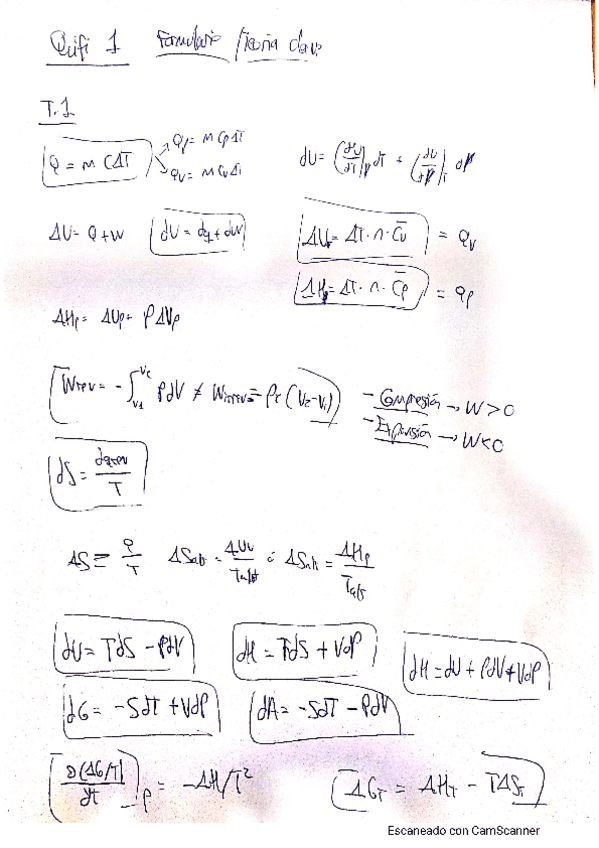 Quifi 1 Formulario / Teoría clave
T.1
Q = m C ΔT → Qp = m Cp ΔT
→ Qv = m Cv ΔT
dU = (dU/dT)p dT + (dU/dP)T dP
ΔU = Q + W dU = dq + dw ΔUv = ΔT · n · C̅v = Qv
ΔHp = ΔT · n · C̅p = Qp
ΔHp = ΔUp + PΔVp
Wrev = -∫V1V2 PdV ≠ Wirrev = -Pf (V2 - V1) - Compresión → W > 0
- Expansión → W < 0
dS = dqrev / T
ΔS = Q/T ΔSalr = ΔUv/Talr ó ΔSalr = ΔHp/Talr
dU = TdS - PdV dH = TdS + VdP dH = dU + PdV + VdP
dG = -SdT + VdP dA = -SdT - PdV
[∂(ΔG/T)/∂t]p = -ΔH/T² ΔGT = ΔHT - TΔST
Escaneado con CamScanner